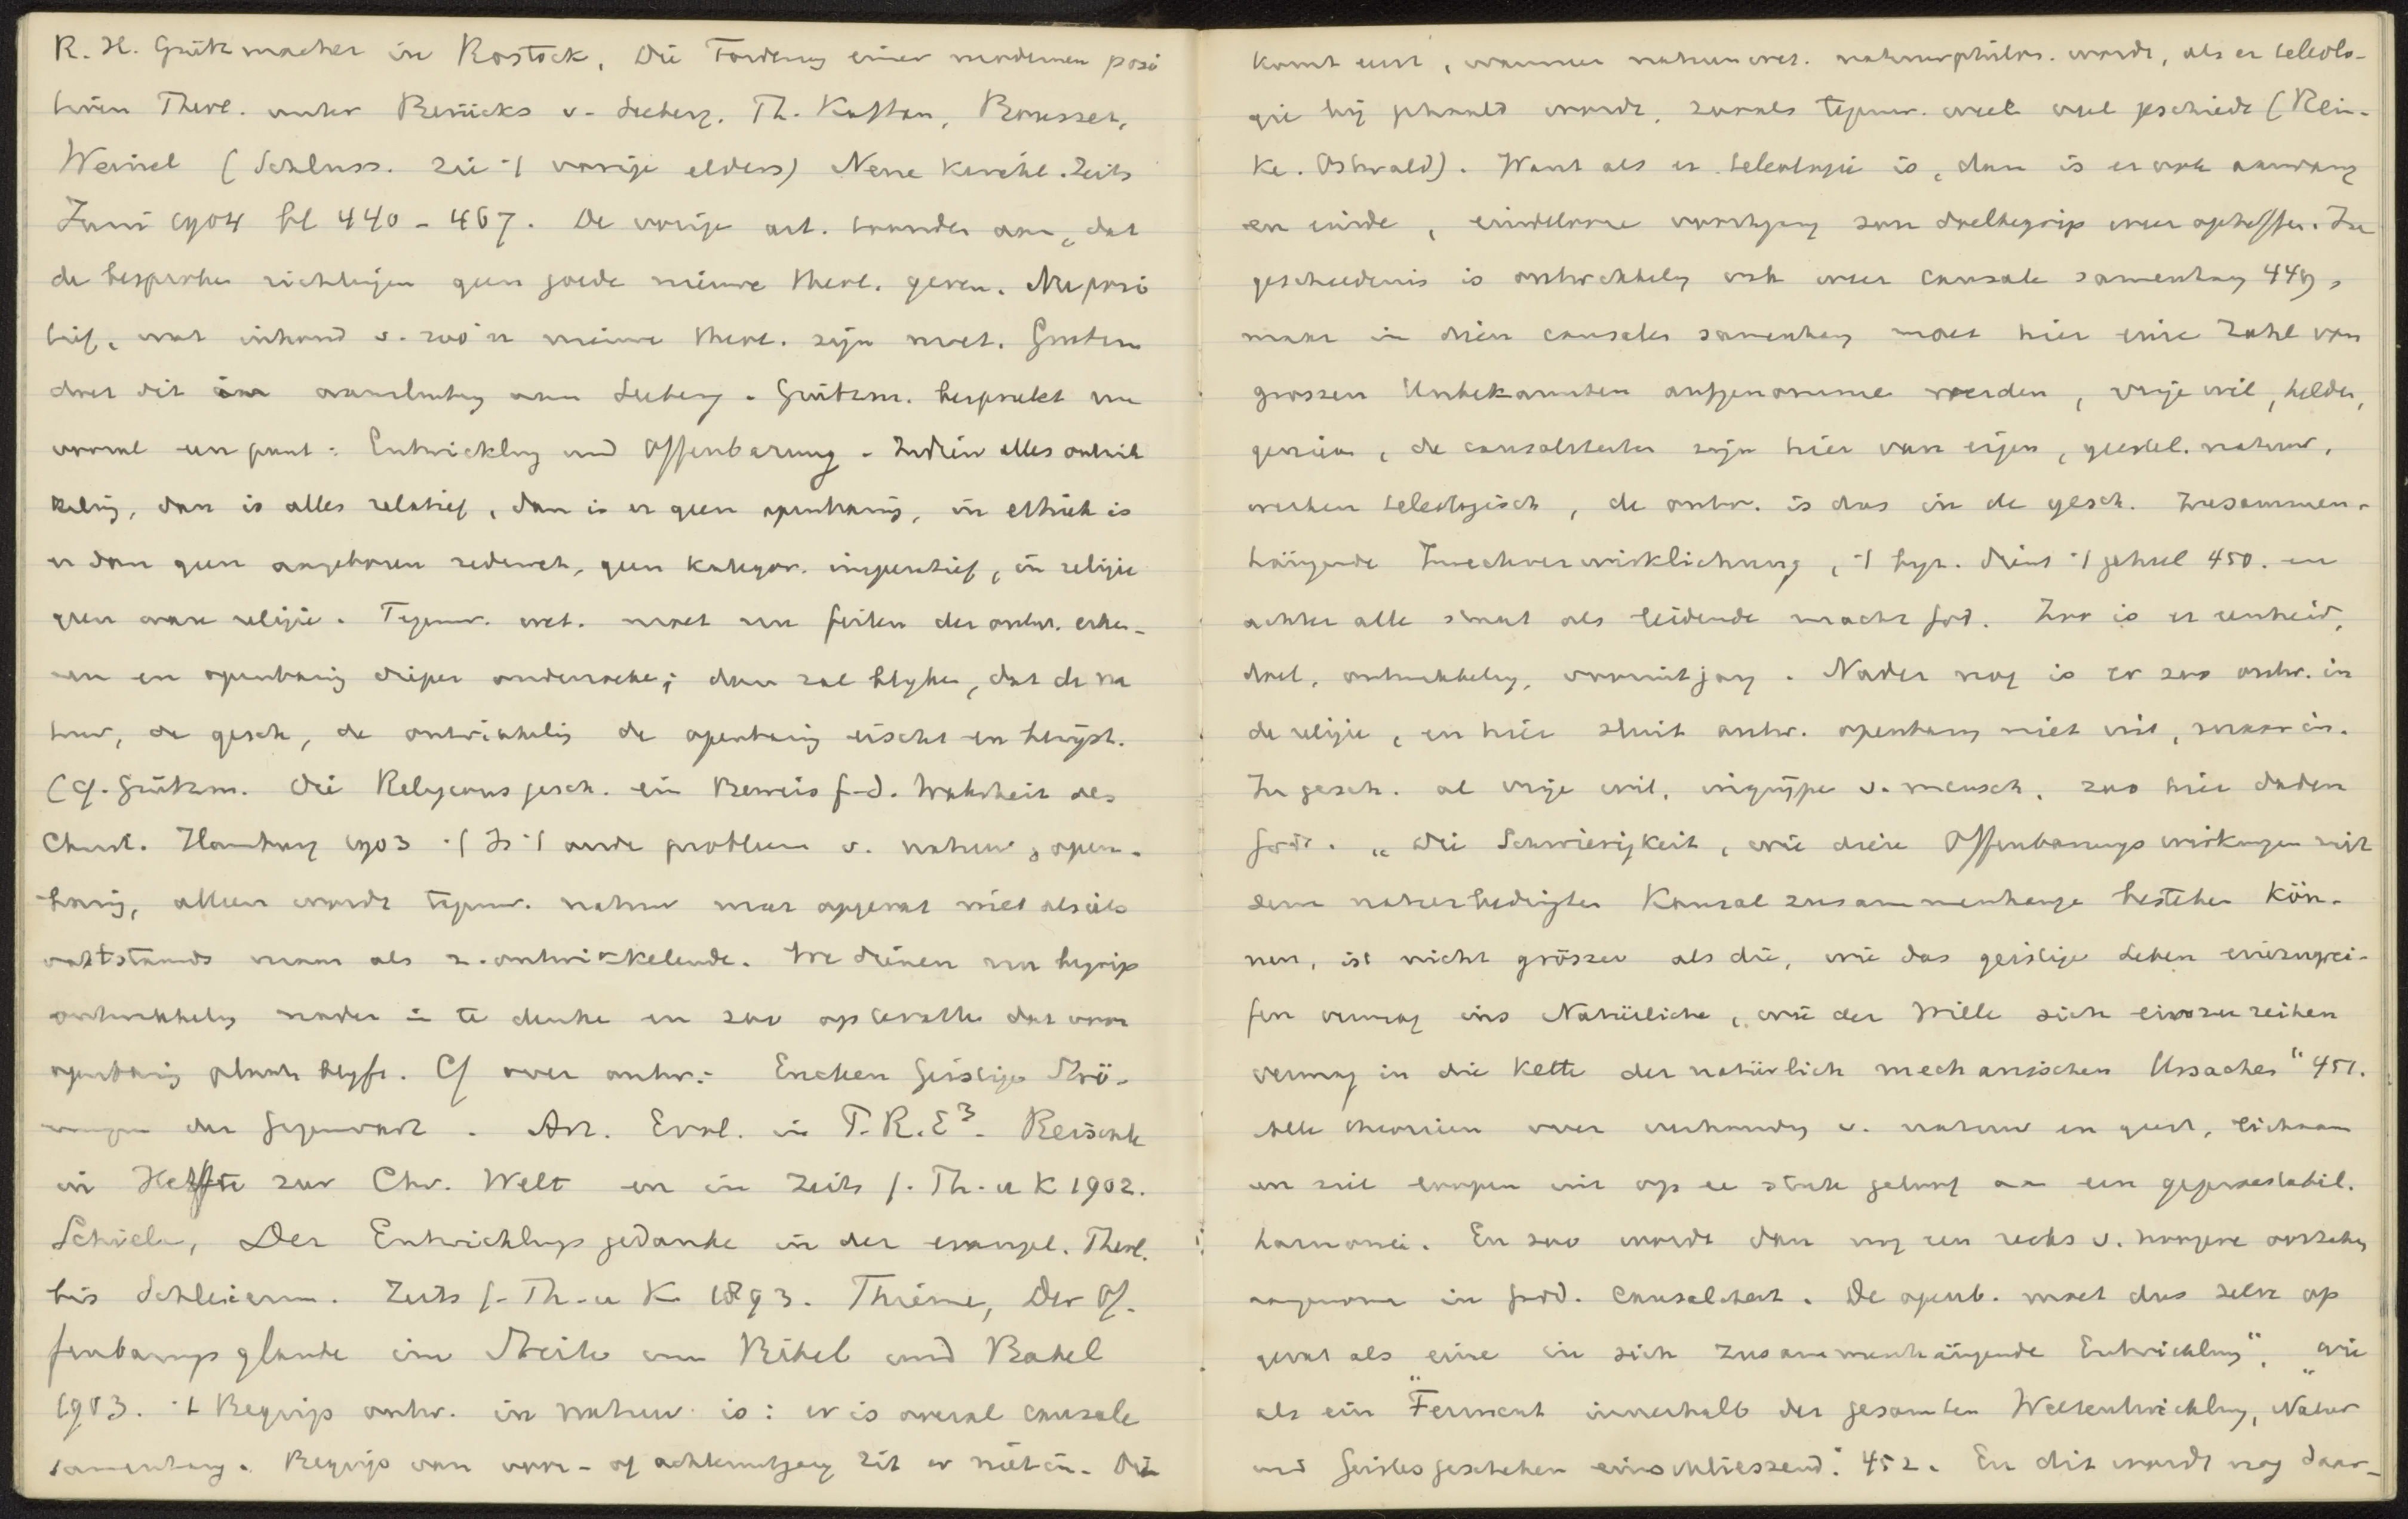 R. H. Grützmacher in Rostock, Die Forderung einer modernen posi
tiven Theol. unter Berücks v. Seeberg. Th. Kaftan, Bousset,
Weinel (Schluss. zie 't vorige elders) Neue Kirchl. Zeits
Juni 1904 bl 440 - 467. De vorige art. toonden aan, dat
de besproken richtingen geen goede nieuwe theol. geven. Nu posi
tief, wat inhoud v. zoo'n nieuwe theol. zijn moet.
doet dit in aansluiting aan Seeberg. Grützm. bespreekt nu
vooral een punt: Entwicklung und Offenbarung. Indien alles ontwik
keling, dan is alles relatief, dan is er geen openbaring, in ethiek is
er dan geen angeboren zedewet, geen kategor. imperatief, in religie
geen ware religie. Tegenw. wet. moet nu feiten der ontw. erken-
nen en openbaring dieper onderzoeken; dan zal blijken, dat de na
tuur, de gesch, de ontwikkeling de openbaring eischt en bewijst.
(Cf. Grützm. Die Religionsgesch. ein Beweis f. d. Wahrheit des
Christ. Hamburg 1903 't Is 't oude probleem v. natuur & open-
baring, alleen wordt tegenw. natuur meer opgevat niet als iets
vaststaands maar als z. ontwikkelende. We dienen nu begrip
ontwikkeling nader in te denken en zoo op te vatten dat voor
openbaring plaats blijft. Cf over ontw.: Eucken Geistige Strö-
mungen der Gegenwart. Art. Evol. in P.R.E³. Reischle
in Hefte zur Chr. Welt en in Zeits f. Th. u K 1902.
Schiele, Der Entwicklungsgedanke in der evangel. Theol.
bis Schleierm. Zeits f. Th. u K 1893. Thieme, Der Of-
fenbarungsglaube im Streite um Bibel und Babel
1903. 't Begrip ontw. in natuur is: er is overal causale
samenhang. Begrip van voor- of achteruitgang zit er niet in. Die
komt eerst, wanneer natuurwet. natuurphilos. wordt, als er teleolo-
gie bij gehaald wordt, zooals tegenw. weer veel geschiedt (Rein-
ke. Ostwald). Want als er teleologie is, dan is er ook aanvang
en einde, eindelooze voortgang zou doelbegrip weer opheffen. In
geschiedenis is ontwikkeling ook weer causale samenhang 449,
maar in dien causalen samenhang moet hier eine Zahl von
grossen Unbekannten aufgenommen werden, vrije wil, helden,
genieën, de causaliteiten zijn hier van eigen, geestel. natuur,
werken teleologisch, de ontw. is dus in de gesch. zusammen-
hängende Zweckverwirklichung, 't byz. dient 't geheel 450. en
achter alle staat als leidende macht God. Zoo is er eenheid,
doel, ontwikkeling, vooruitgang. Nader nog is er zoo ontw. in
de religie, en hier sluit ontw. openbaring niet uit, maar in.
In gesch. al vrije wil, ingrijpen v. mensch, zoo hier daden
Gods. „Die Schwierigkeit, wie diese Offenbarungswirkungen mit
dem naturbedingten Kausalzusammenhange bestehen kön-
nen, ist nicht grösser als die, wie das geistige Leben einzugrei-
fen vermag ins Natürliche, wie der Wille sich einzureihen
vermag in die Kette der natürlich mechanischen Ursachen" 451.
Alle theorieën over verhouding v. natuur en geest, lichaam
en ziel loopen uit op een stuk geloof aan een gepraestabil.
harmonie. En zoo wordt dan nog een reeks v. hoogere oorzaken
aangenomen in godd. causaliteit. De openb. moet dus zelve op
gevat als eine in sich zusammenhängende Entwicklung", wie
als ein „Ferment innerhalb der gesamten Weltentwicklung, Natur
und Geistesgeschehen einschliessend." 452. En dit wordt nog daar-